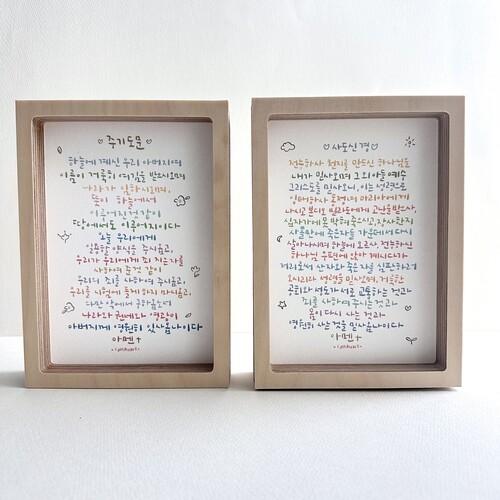 주기도문
하늘에 계신 우리 아버지여
이름이 거룩히 여김을 받으시오며
나라가 임하시오며,
뜻이 하늘에서
이루어진것같이
땅에서도 이루어지이다
오늘 우리에게
일용할 양식을 주시옵고,
우리가 우리에게 죄 지은자를
사하여 준것 같이
우리의 죄를 사하여 주시옵고,
우리를 시험에 들게하지 마시옵고,
다만 악에서 구하옵소서
나라와 권세와 영광이
아버지께 영원히 있사옵나이다
아멘
사도신경
전능하사 천지를 만드신 하나님을
내가 믿사오며 그의 아들 예수
그리스도를 믿사오니, 이는 성령으로
잉태하사 동정녀 마리아에게
나시고 본디오 빌라도에게 고난을받으사,
십자가에 못 박혀죽으시고,장사한지
사흘만에 죽은자들 가운데서 다시
살아나시며 하늘에 오르사, 전능하신
하나님 우편에 앉아 계시다가
저리로서 산자와 죽은자를 심판하러
오시리라 성령을 믿사오며, 거룩한
공회와 성도가 서로 교통하는 것과
죄를 사하여 주시는 것과
몸이 다시 사는 것과
영원히 사는 것을 믿사옵나이다
아멘